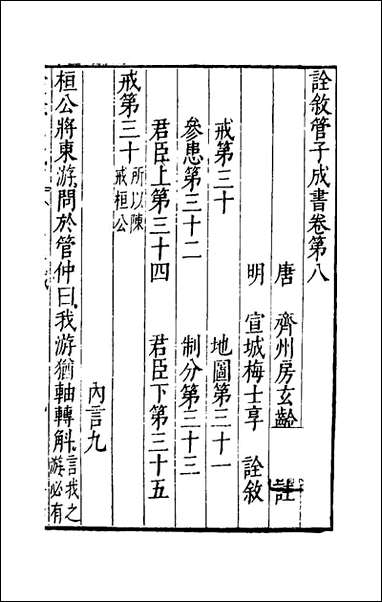 詮敘管子成書卷第八
唐　齊州房玄齡　註
明　宣城梅士享　詮敘
戒第三十　地圖第三十一
參患第三十二　制分第三十三
君臣上第三十四　君臣下第三十五
戒第三十　所以陳戒桓公　內言九
桓公將東游問於管仲曰我游猶軸轉斛言我之游必有